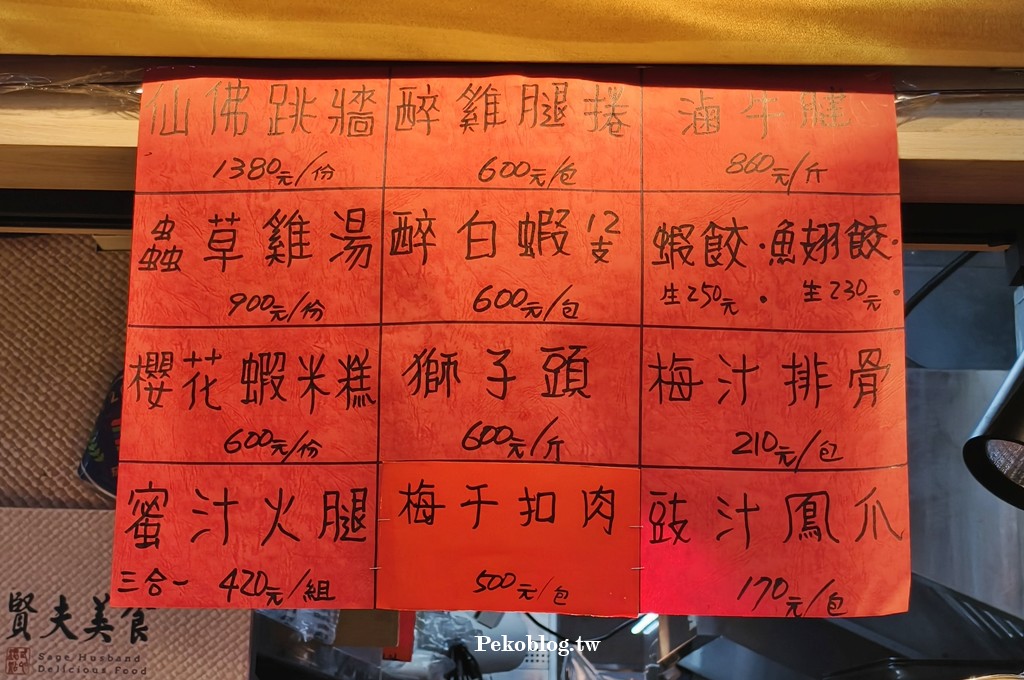 仙佛跳牆
1380元/份
醉雞腿捲
600元/包
滷牛腱
860元/斤
蟲草雞湯
900元/份
醉白蝦12支
600元/包
蝦餃·魚翅餃·
生250元· 生230元·
櫻花蝦米糕
600元/份
獅子頭
600元/斤
梅汁排骨
210元/包
蜜汁火腿
三合一 420元/組
梅干扣肉
500元/包
豉汁鳳爪
170元/包
賢夫美食
Sage Husband
Delicious Food
Pekoblog.tw